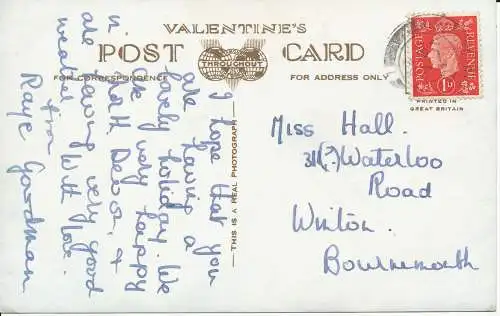 VALENTINE'S
POST CARD
THROUGHOUT
FOR CORRESPONDENCE
FOR ADDRESS ONLY
POSTAGE
REVENUE
1D
PRINTED IN
GREAT BRITAIN
THIS IS A REAL PHOTOGRAPH
I hope that you
are having a
lovely holiday. We
are very happy
in N. Devon, &
are having very good
weather. With love
from
Raye Goodman
Miss Hall.
31(?) Waterloo
Road
Winton.
Bournemouth